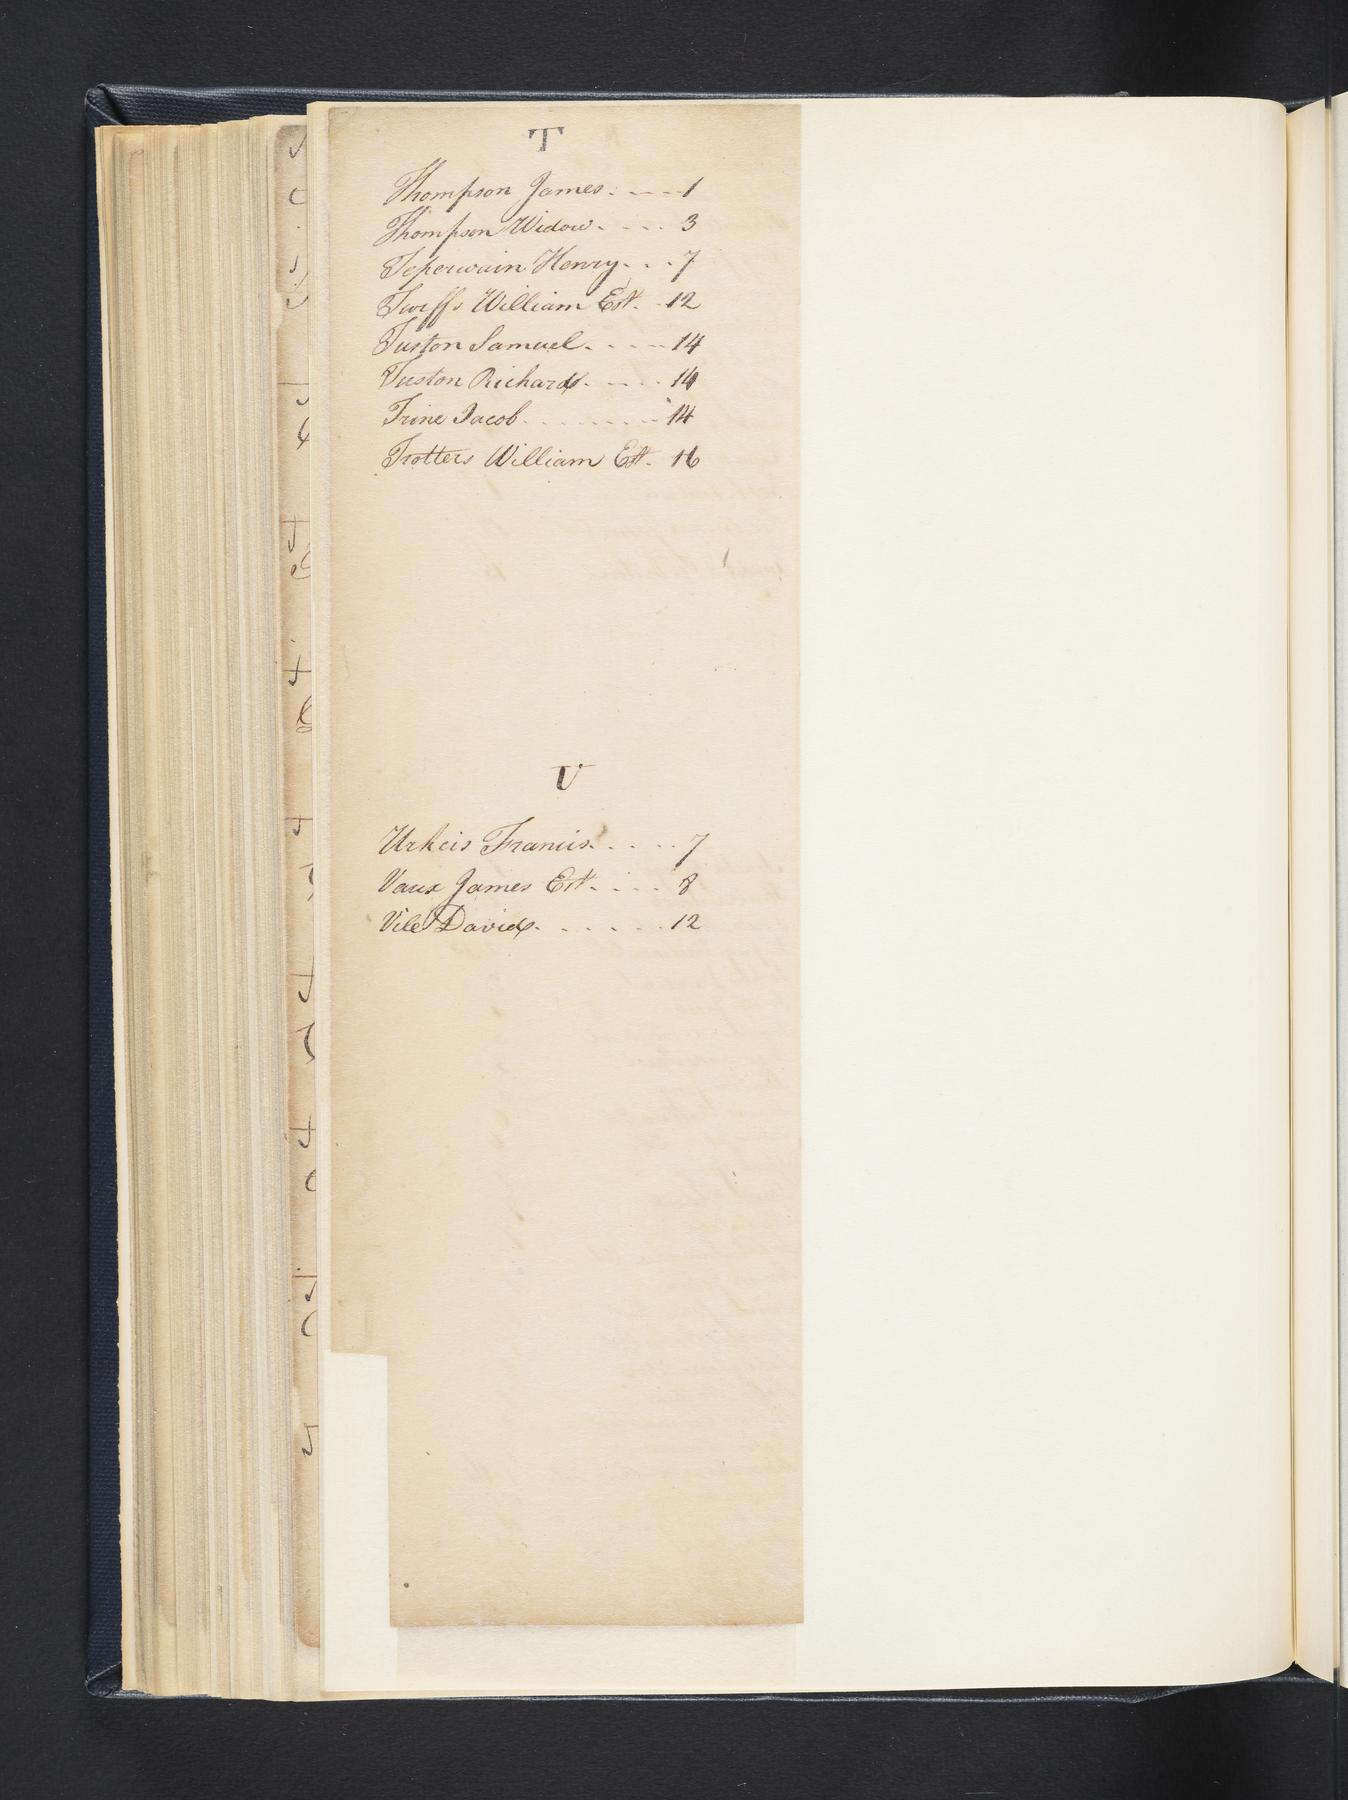 T
Thompson James. ---- 1
Thompson Widow. . . . . 3
Teperwain Henry. . . 7
Twiffs William Est. . 12
Tuston Samuel. . . . . 14
Tuston Richard. . . . . 14
Trine Jacob. . . . . . . . . 14
Trotters William Est. 16
V
Urkeis Francis. . . . . 7
Vaux James Est. . . . . 8
Vile David. . . . . . . 12